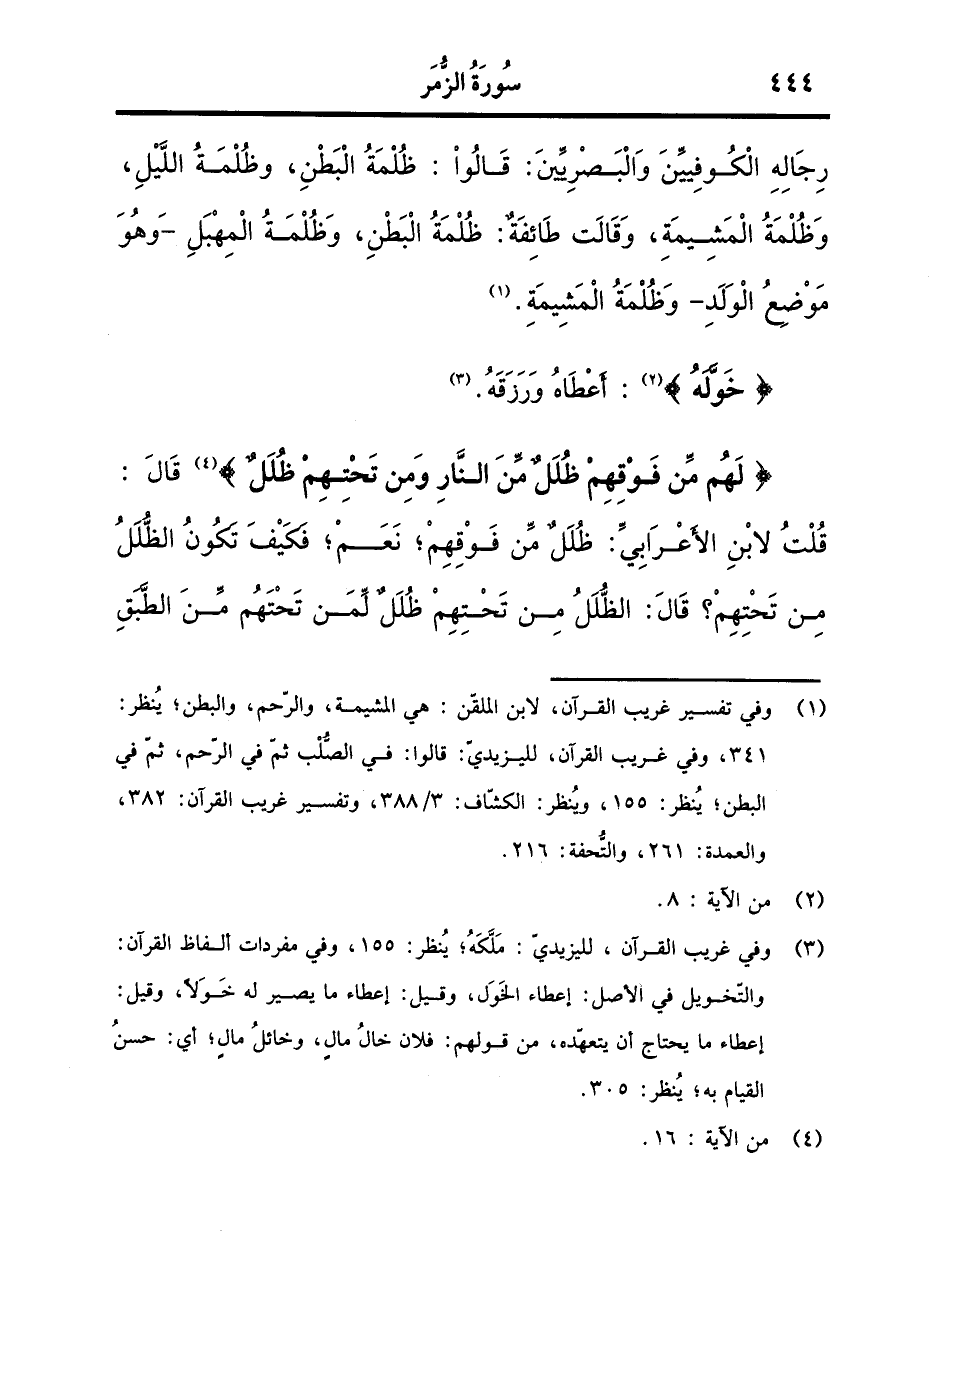 ٤٤٤
سُورَةُ الزُّمَر
رِجَالِهِ الْكُوفِيِّينَ وَالْبَصْرِيِّينَ: قَالُواْ : ظُلْمَةُ الْبَطْنِ، وَظُلْمَةُ اللَّيْلِ،
وَظُلْمَةُ الْمَشِيمَةِ، وَقَالَت طَائِفَةٌ: ظُلْمَةُ الْبَطْنِ، وَظُلْمَةُ الْمِهْبَلِ -وَهُوَ
مَوْضِعُ الْوَلَدِ- وَظُلْمَةُ الْمَشِيمَةِ.(١)
﴿ خَوَّلَهُ ﴾(٢) : أَعْطَاهُ وَرَزَقَهُ.(٣)
﴿ لَهُم مِّن فَوْقِهِمْ ظُلَلٌ مِّنَ النَّارِ وَمِن تَحْتِهِمْ ظُلَلٌ ﴾(٤) قَالَ :
قُلْتُ لابْنِ الأَعْرَابِيِّ: ظُلَلٌ مِّن فَوْقِهِمْ؛ نَعَمْ؛ فَكَيْفَ تَكُونُ الظُّلَلُ
مِن تَحْتِهِمْ؟ قَالَ: الظُّلَلُ مِن تَحْتِهِمْ ظُلَلٌ لِّمَن تَحْتَهُم مِّنَ الطَّبَقِ
(١) وفي تفسير غريب القرآن، لابن الملقّن : هي المشيمة، والرّحم، والبطن؛ يُنظر:
٣٤١، وفي غريب القرآن، لليزيديّ: قالوا: في الصُّلْب ثمّ في الرّحم، ثمّ في
البطن؛ يُنظر: ١٥٥، ويُنظر: الكشّاف: ٣٨٨/٣، وتفسير غريب القرآن: ٣٨٢،
والعمدة: ٢٦١، والتُّحفة: ٢١٦.
(٢) من الآية : ٨.
(٣) وفي غريب القرآن ، لليزيديّ : مَلَّكَهُ؛ يُنظر: ١٥٥، وفي مفردات ألفاظ القرآن:
والتّخويل في الأصل: إعطاء الخَوَل، وقيل: إعطاء ما يصير له خَوَلاً، وقيل:
إعطاء ما يحتاج أن يتعهّده، من قولهم: فلان خالُ مالٍ، وخائلُ مالٍ؛ أي: حسنُ
القيام به؛ يُنظر: ٣٠٥.
(٤) من الآية : ١٦.